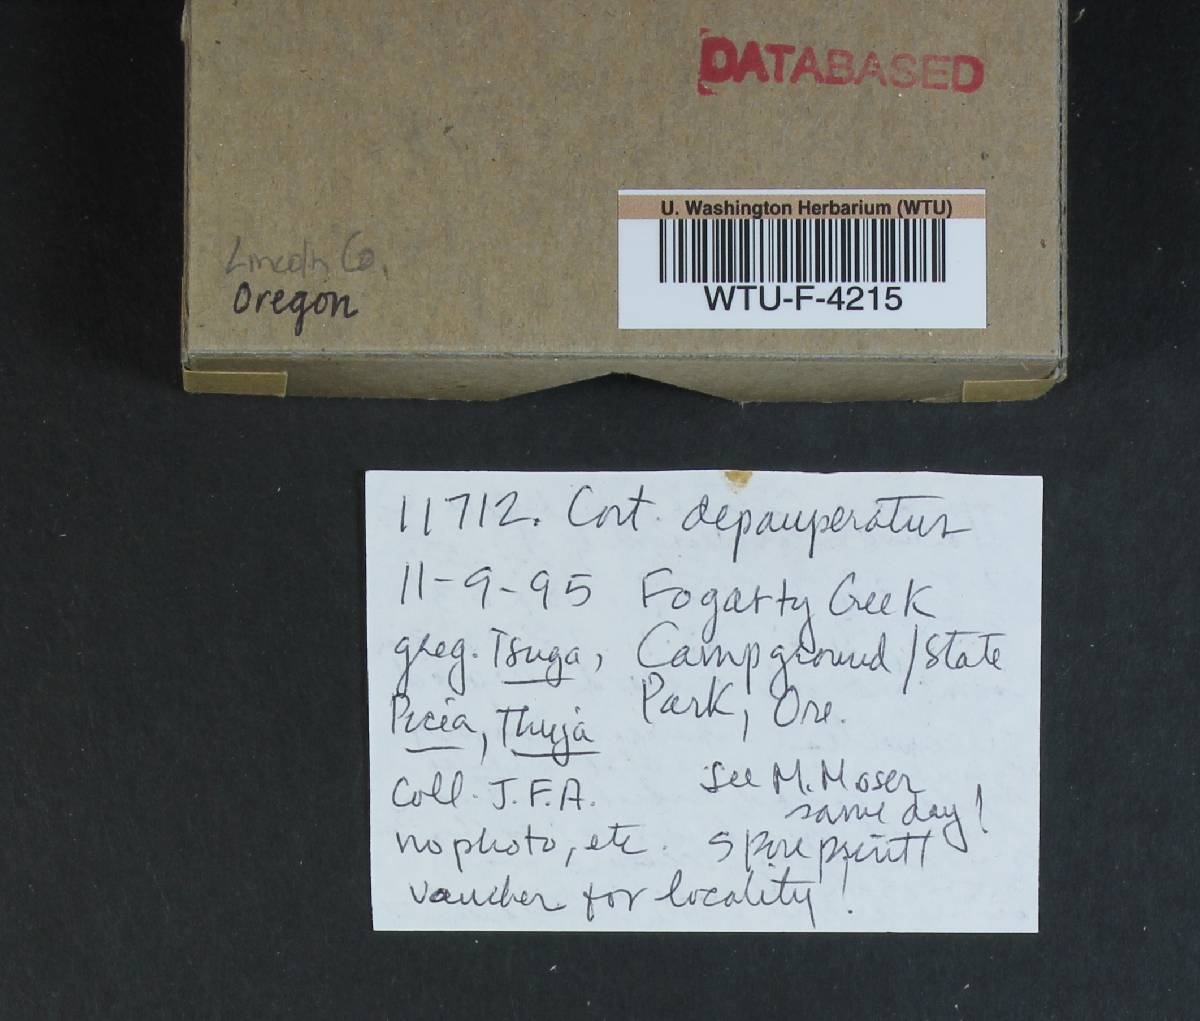 DATABASED
U. Washington Herbarium (WTU)
WTU-F-4215
Lincoln Co,
Oregon
11712. Cort. depauperatus
11-9-95 Fogarty Creek
greg. Tsuga, Campground/State
Picea, Thuja Park, Ore.
Coll. J.F.A. See M. Moser
same day!
no photo, etc. spore print!
voucher for locality!